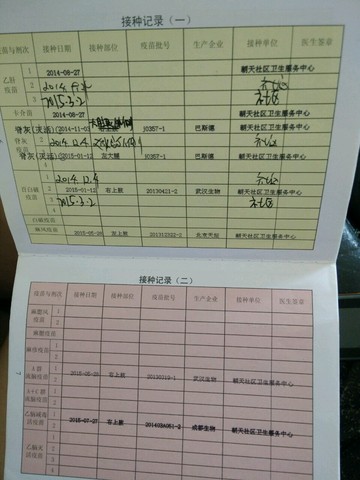 接种记录（一）
疫苗与剂次 接种日期 接种部位 疫苗批号 生产企业 接种单位 医生签章
乙肝疫苗 1 2014-08-27 朝天社区卫生服务中心
2 社区
3 2015.3.2 社区
卡介苗 2014-08-27 朝天社区卫生服务中心
脊灰(灭活) 2014-11-03 j0357-1 巴斯德 朝天社区卫生服务中心
脊灰疫苗 2014.12.4 社区
脊灰(灭活) 2015-01-12 左大腿 j0357-1 巴斯德 朝天社区卫生服务中心
百白破疫苗 1 2014.12.4 社区
2 2015-01-12 右上臂 20130421-2 武汉生物 朝天社区卫生服务中心
3 2015.3.2 社区
4
白破疫苗
麻风疫苗 右上臂 北京天坛 朝天社区卫生服务中心
接种记录（二）
疫苗与剂次 接种日期 接种部位 疫苗批号 生产企业 接种单位 医生签章
麻腮风疫苗 1
2
麻腮疫苗
麻疹疫苗 1
2
A群流脑疫苗 1 右上臂 武汉生物 朝天社区卫生服务中心
2
A+C群流脑疫苗 1
2
乙脑减毒活疫苗 1 2015-07-27 右上臂 成都生物 朝天社区卫生服务中心
2
乙脑灭活疫苗 1
2
3
4